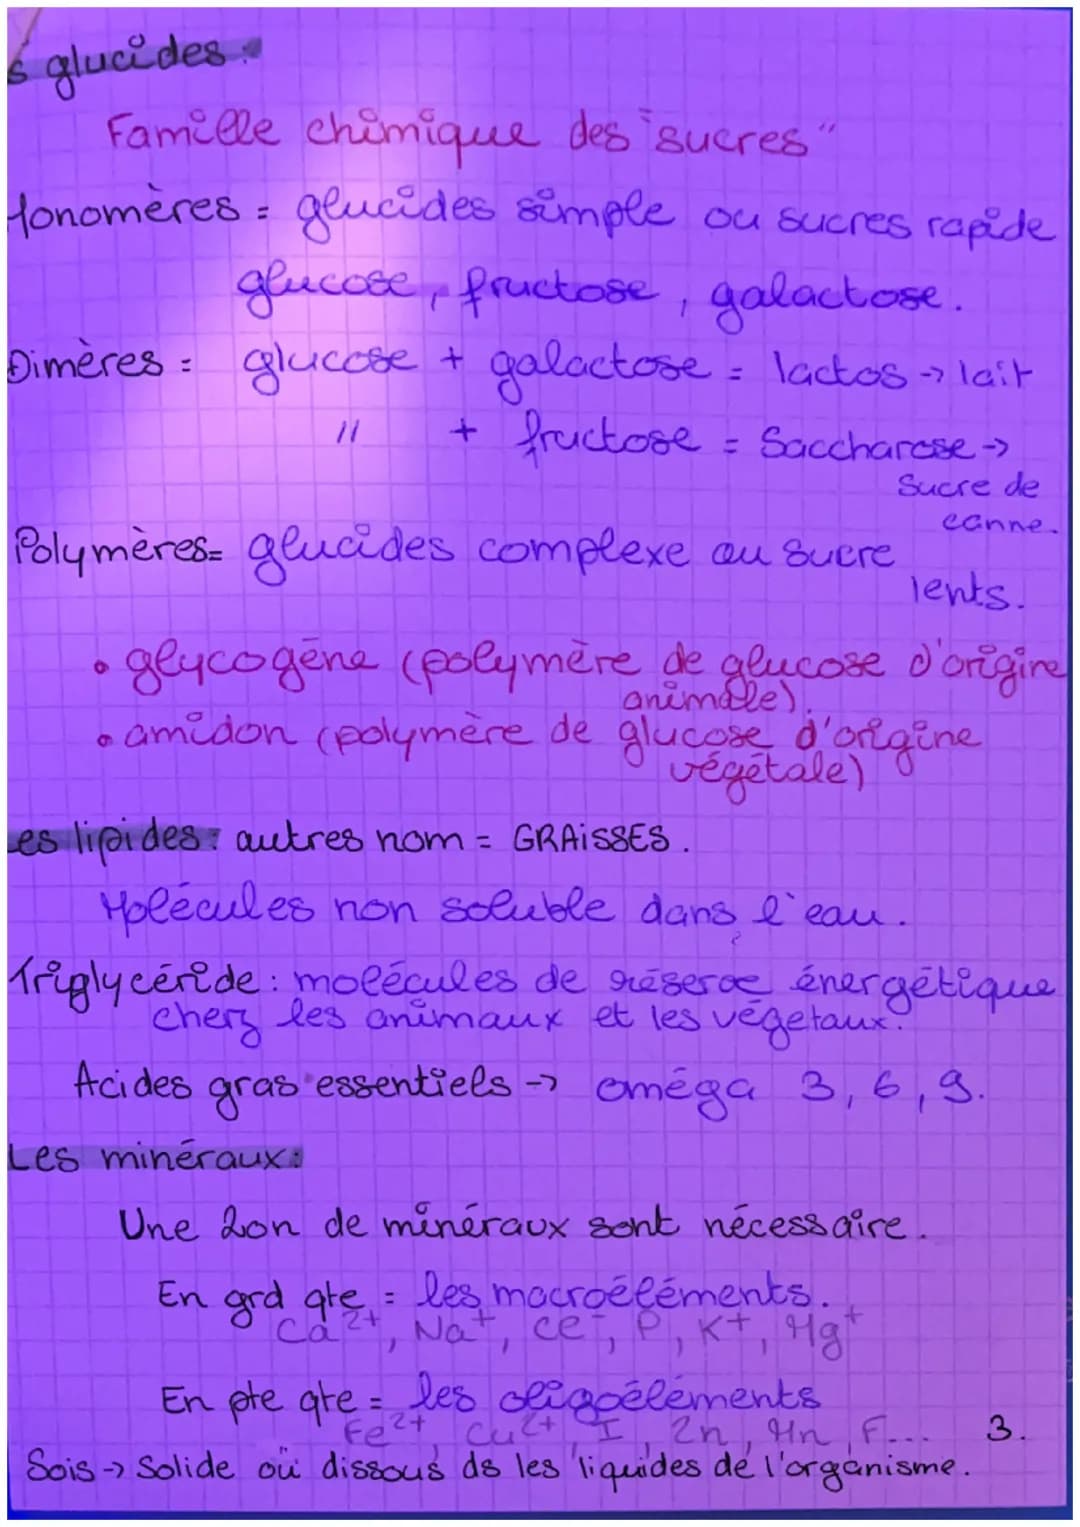 s glucides :
Famille chimique des "sucres"
Monomères = glucides simple ou sucres rapide
glucose, fructose, galactose.
Dimères = glucose + galactose = lactos -> lait
" + fructose = Saccharose ->
Sucre de
canne.
Polymères = glucides complexe ou sucre
lents.
• glycogène (polymère de glucose d'origine
animale).
• amidon (polymère de glucose d'origine
végétale)
Les lipides : autres nom = GRAiSSES.
Molécules non soluble dans l'eau.
Triglycéride : molécules de réserve énergétique
cherz les animaux et les végetaux.
Acides gras essentiels -> oméga 3, 6, 9.
Les minéraux :
Une 20n de minéraux sont nécessaire.
En grd qte = les macroéléments.
Ca2+, Na+, Cl-, P, K+, Mg+
En pte qte = les oligoéléments
Fe2+, Cu2+, I, Zn, Mn, F... 3.
Sois -> Solide où dissous ds les liquides de l'organisme.